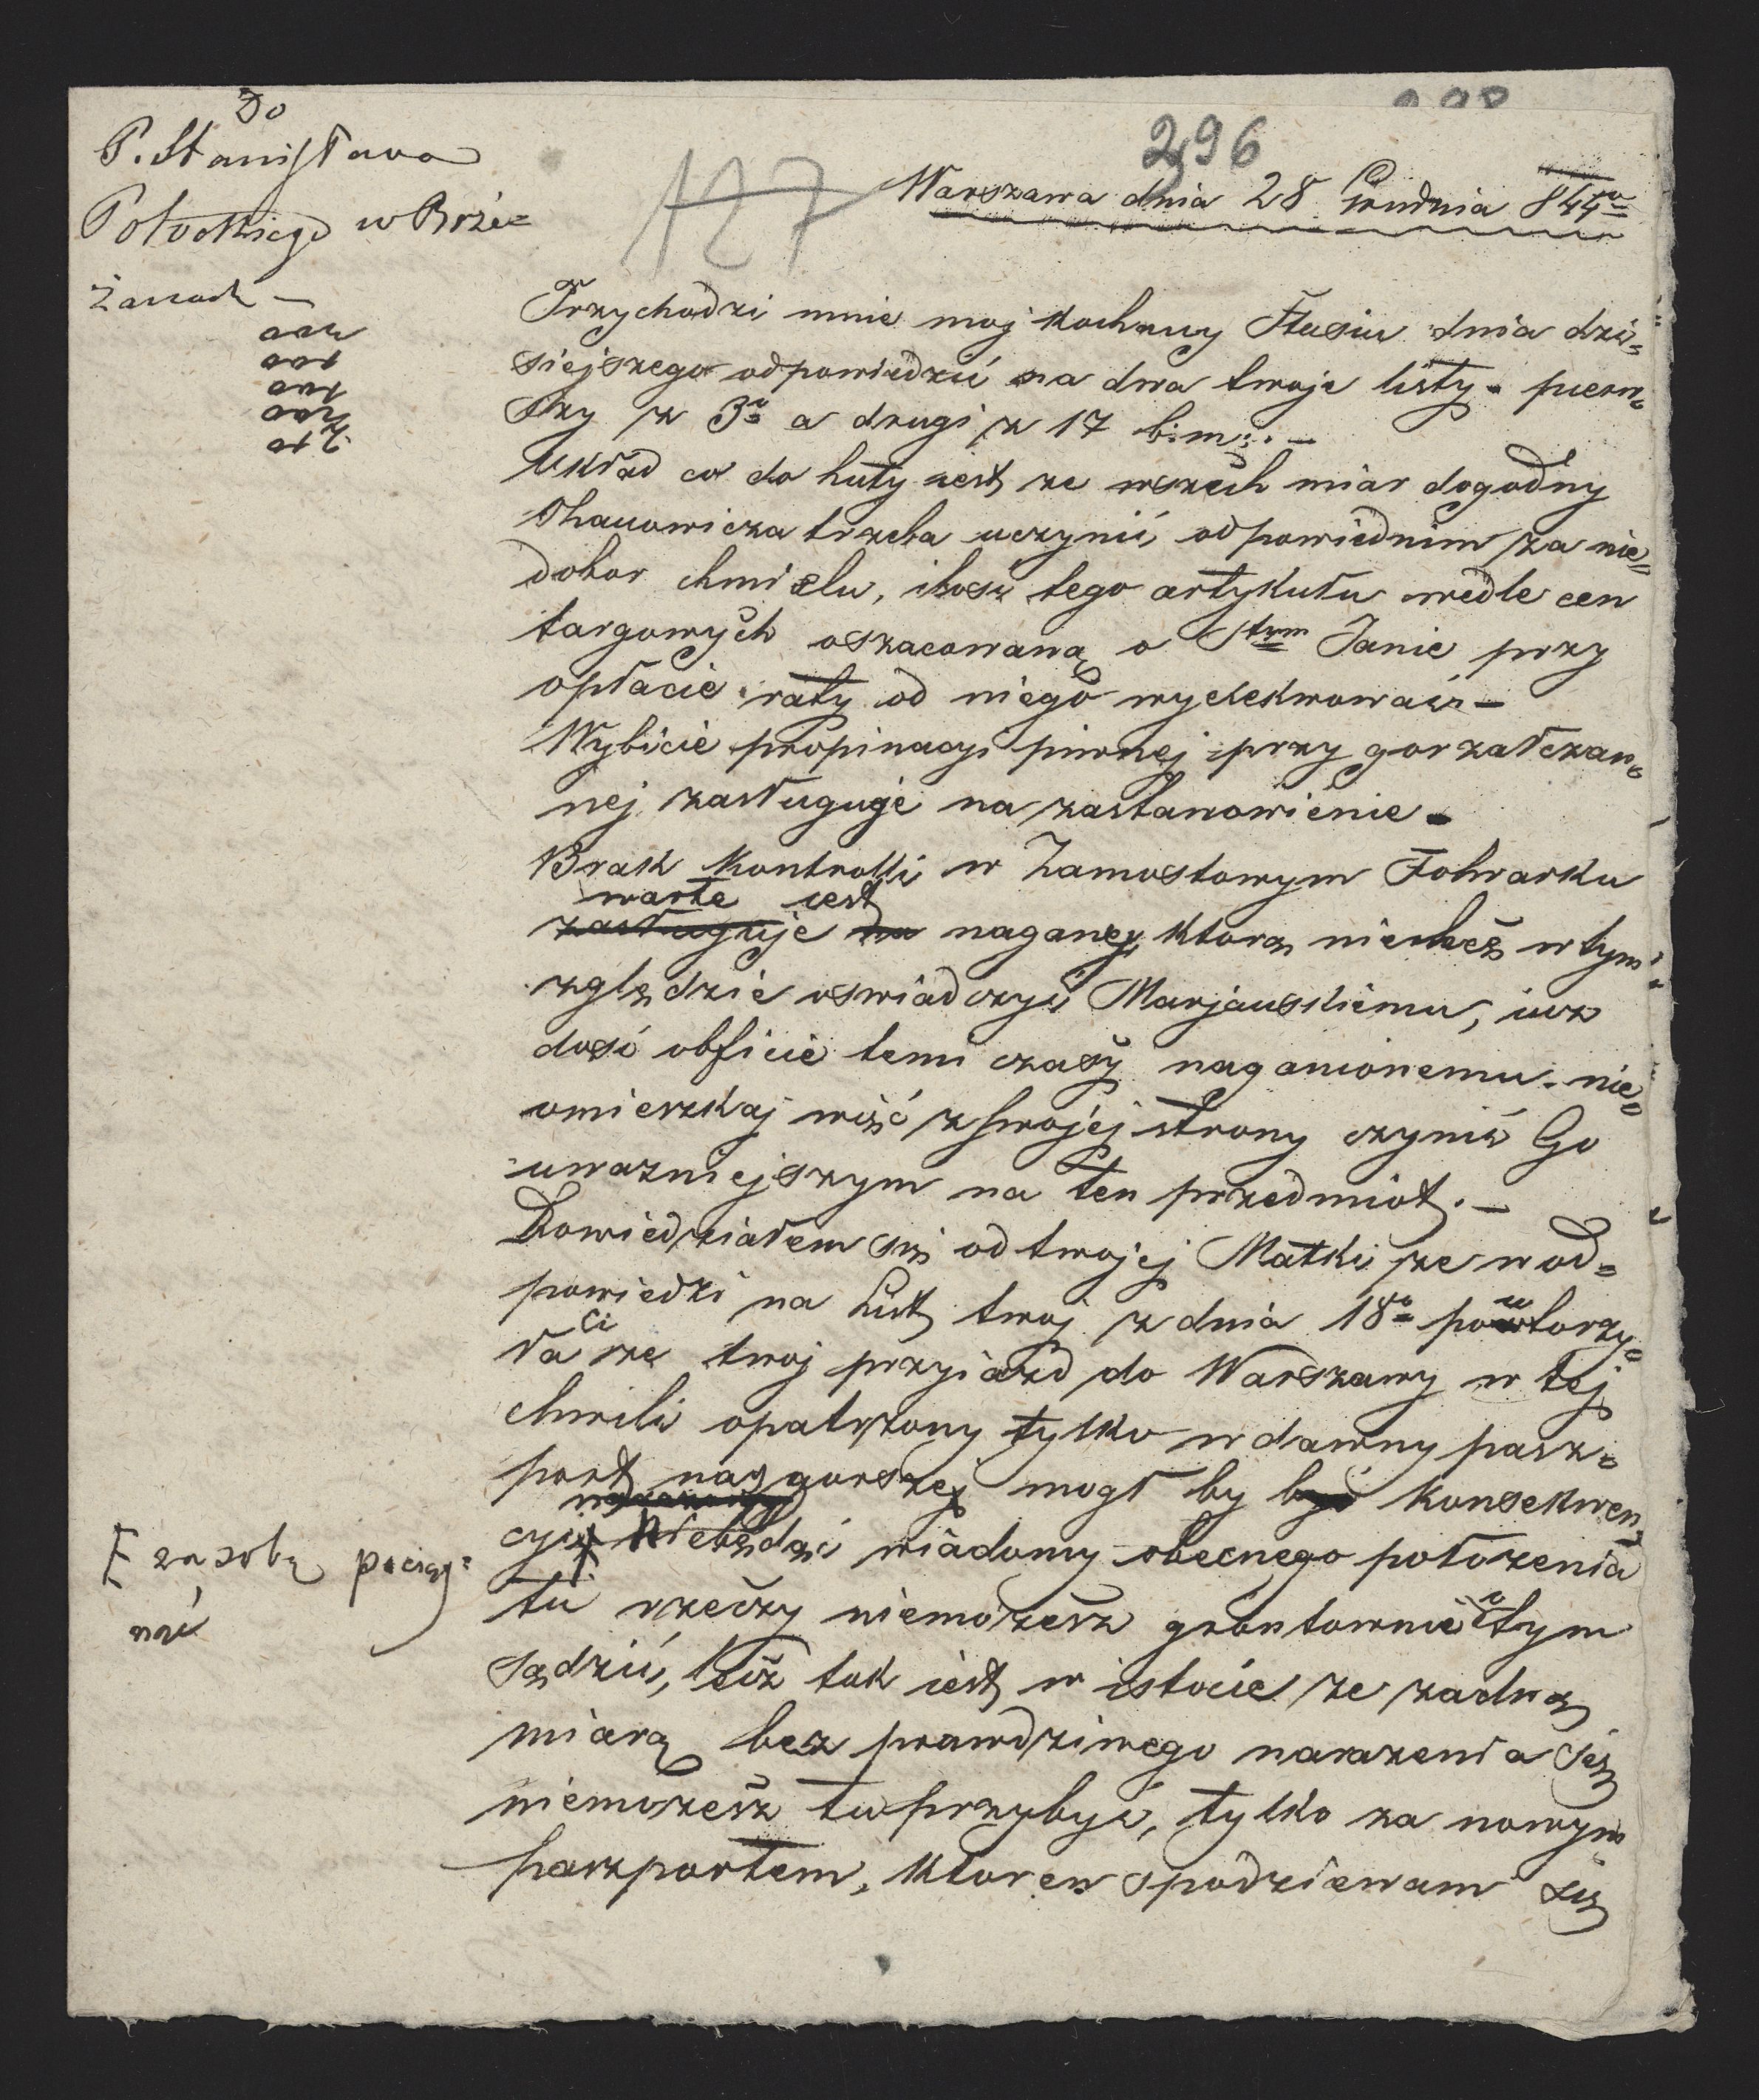 Do
P. Stanisława
Potockiego w Brze=
żanach —
298
296
127
Warszawa dnia 28 Grudnia 844ro
Przychodzi mnie moj kochany Stasiu dnia dzi=
siejszego odpowiedzić na dwa twoje listy - pierw=
szy z 3o a drugi z 17 b:m:. —
Układ co do huty iest ze wszech miar dogodny
trzeba uczynić odpowiednim za nie=
dobor chmielu, ilosć tego artykułu wedle cen
targowych oszacowaną o Stym Janie przy
opłacie raty od niego wyexekwować —
Wybicie propinacyi piwnej przy gorzałczan=
nej zasługuje na zastanowienie —
Brak kontrolli w Zamostowym Folwarku
warte iest
zasługuje na nagany, ktorą niechćż w tym
względzie oswiadczyć Marjanskiemu, iuz
dosć obficie temi czasy naganionemu. nie=
omieszkaj wiąć z swojéj strony czynić Go
uwazniejszym na ten przedmiot. —
Dowiedziałem się od twojej Matki ze w od=
powiedzi na List twoj z dnia 18o powtorzy=
ła ci ze twoj przyiazd do Warszawy w tej
chwili opatrzony tylko w dawny pasz=
port naygorszej mogł by być konsekwen=
cyi Niebędąć wiadomy obecnego połozenia
F za sobą pociąg=
nąć
tu rzeczy niemozesz gruntownie o tym
sądzić, lecz tak iest w istocie ze zadną
miarą bez prawdziwego narazenia się
niemozesz tu przybyć, tylko za nowym
paszportem, ktoren spodziewam się